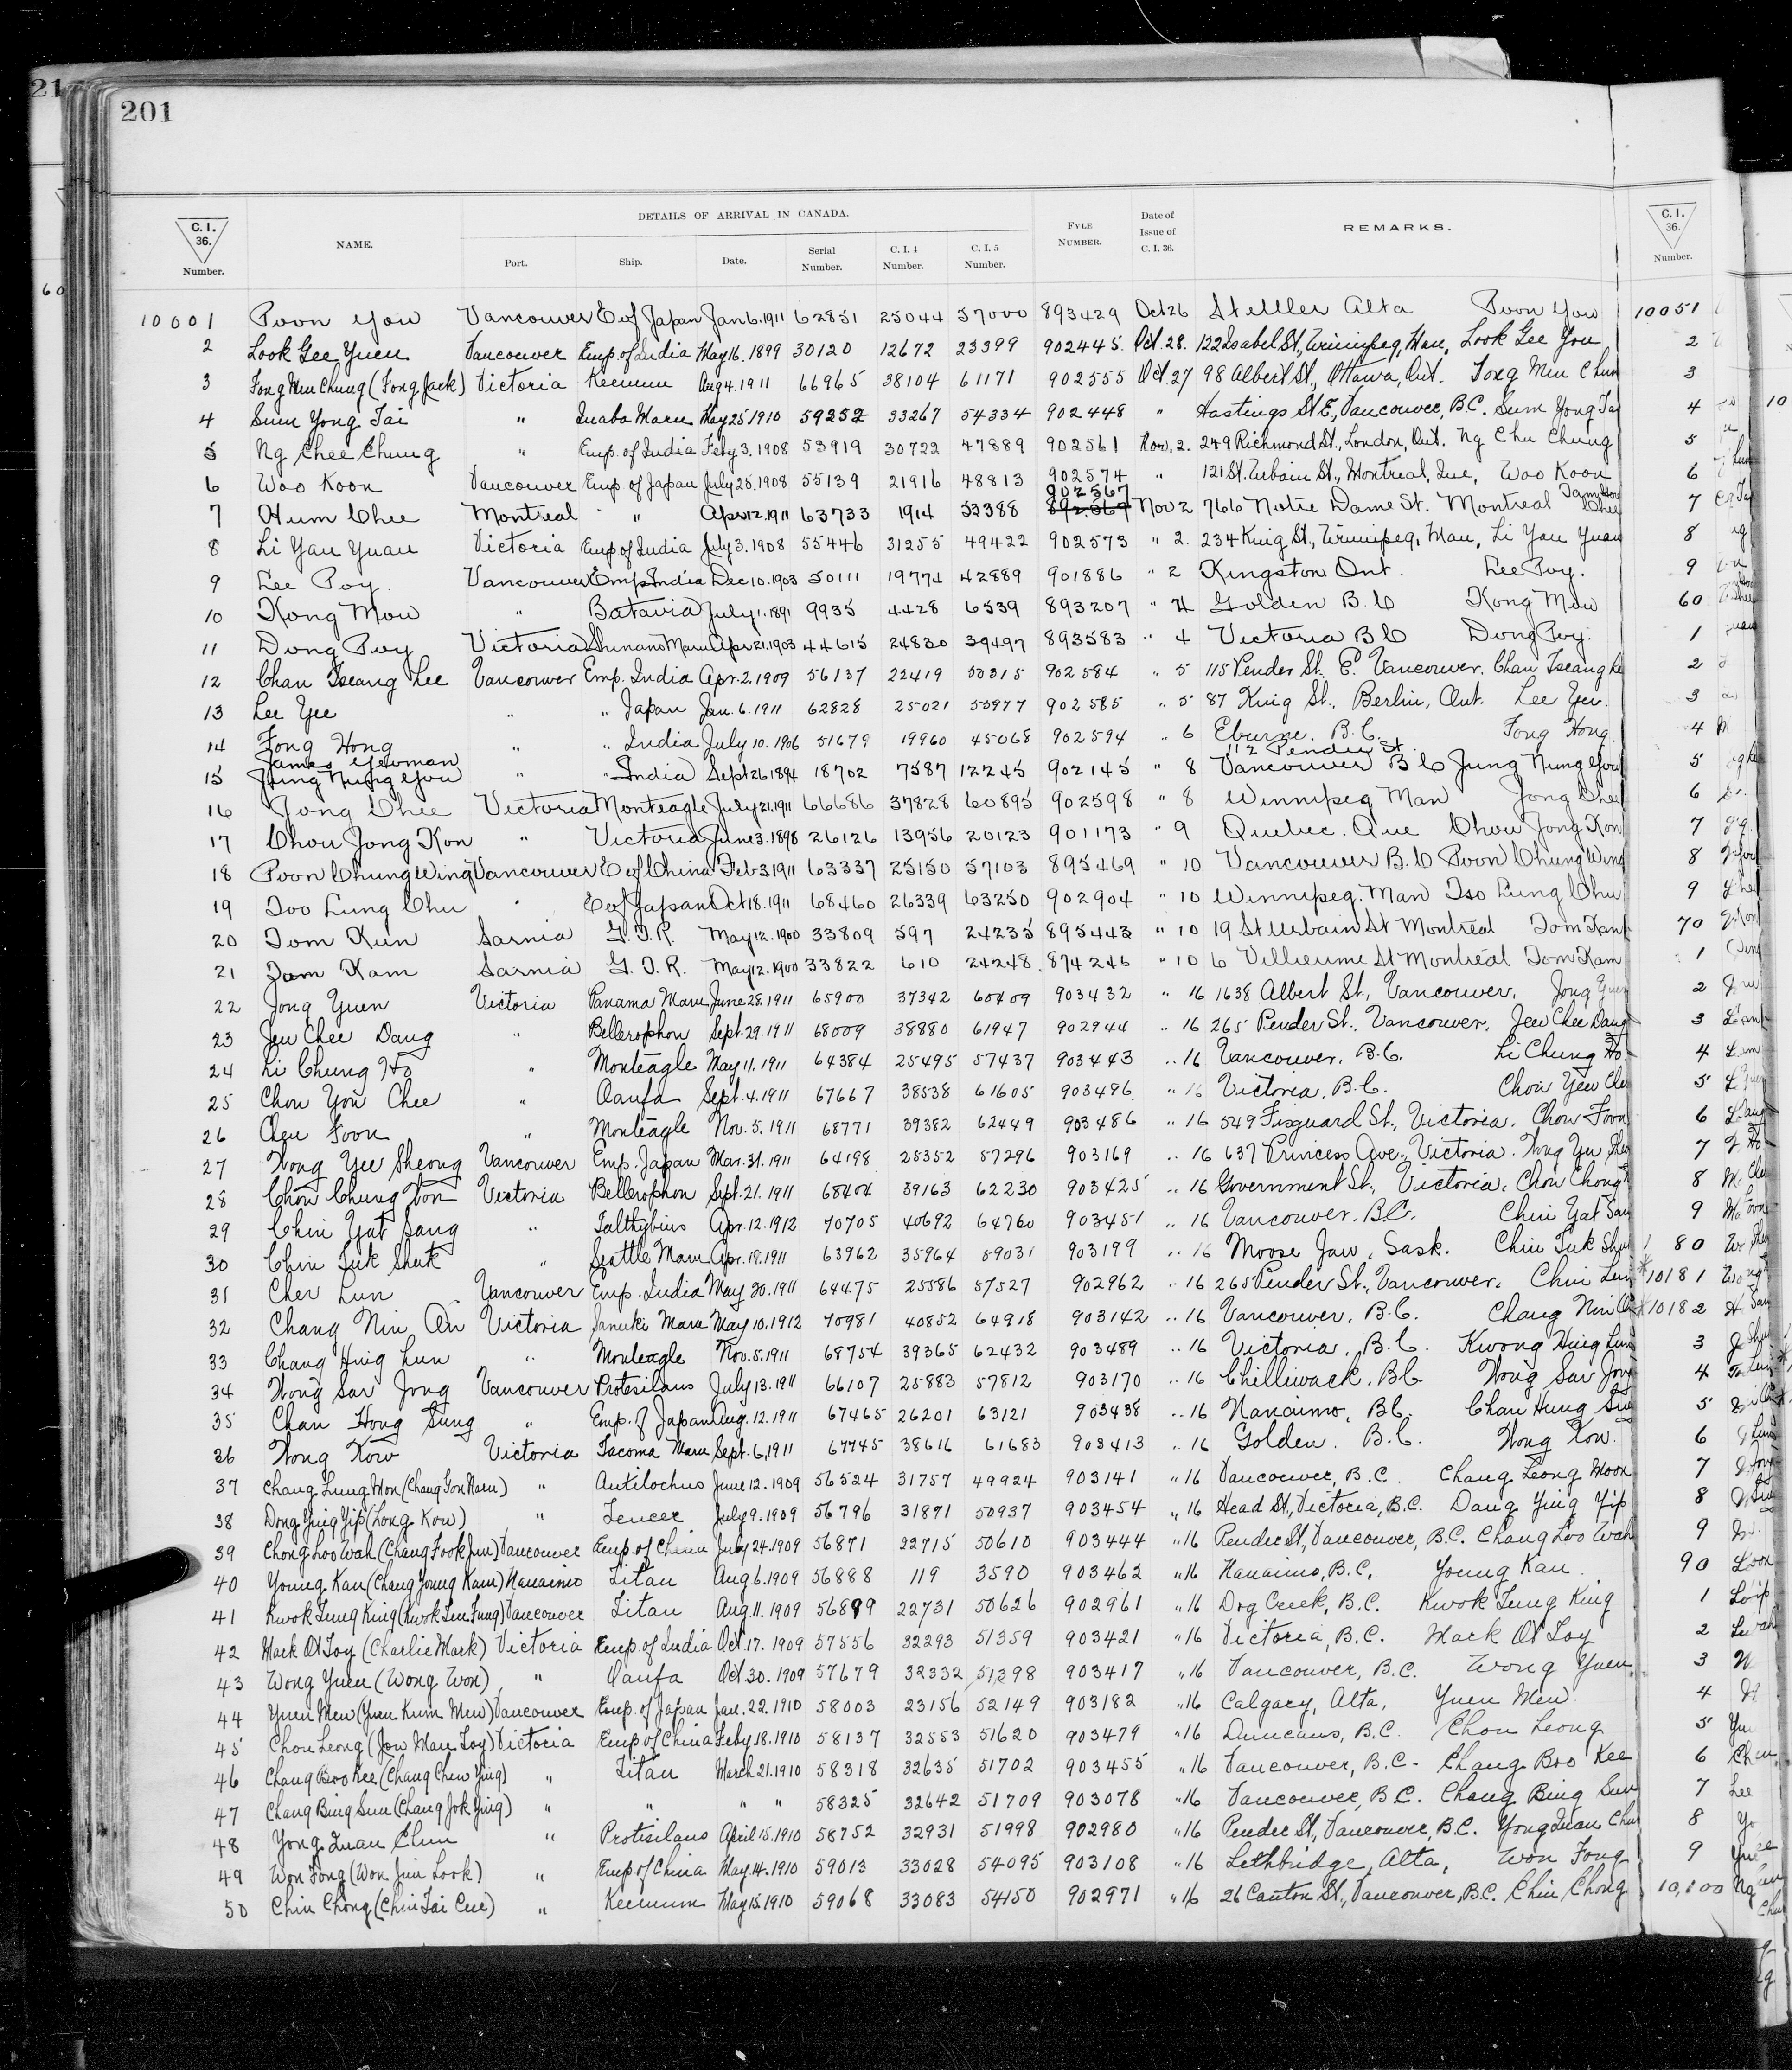 21
201
60
DETAILS OF ARRIVAL IN CANADA.
C. I. 36. Number. NAME. Port. Ship. Date. Serial Number. C. I. 4 Number. C. I. 5 Number. FYLE NUMBER. Date of Issue of C. I. 36. REMARKS. C. I. 36. Number.
10001 Poon You Vancouver E of Japan Jan 6. 1911 62851 25044 57000 893429 Oct 26 Stettler Alta Poon You 10051
2 Look Gee Yuen Vancouver Emp. of India May 16. 1899 30120 12672 23399 902445. Oct. 28. 122 Isabel St., Winnipeg, Man, Look Gee You 2
3 Fong Men Chung (Fong Jack) Victoria Keemun Aug 4. 1911 66965 38104 61171 902555 Oct. 27 98 Albert St., Ottawa, Ont. Fong Min Chun 3
4 Sum Yong Tai " Inaba Maru May 25. 1910 59252 33267 54334 902448 " Hastings St E, Vancouver, B.C. Sum Yong Tai 4 10
5 Ng Chee Chung " Emp. of India Feby 3. 1908 53919 30722 47889 902561 Nov. 2. 249 Richmond St., London, Ont. Ng Chu Chung 5
6 Woo Koon Vancouver Emp of Japan July 25. 1908 55139 21916 48813 902574 " 121 St. Urbain St., Montreal, Que, Woo Koon 6
902567
7 Hum Chee Montreal " Apr 12. 1911 63733 1914 53388 892569 Nov 2 766 Notre Dame St. Montreal Tam How Chee 7
8 Li Yau Yuan Victoria Emp of India July 3. 1908 55446 31255 49422 902573 " 2. 234 King St., Winnipeg, Man, Li Yau Yuan 8
9 Lee Poy. Vancouver Emp India Dec 10. 1903 50111 19774 42889 901886 " 2 Kingston Ont. Lee Poy. 9
10 Kong Mow " Batavia July 1. 1891 9935 4428 6539 893207 " 4 Golden B.C Kong Mow 60
11 Dong Poy Victoria Shinano Maru Apr 21. 1903 44615 24830 39497 893583 " 4 Victoria B C Dong Poy. 1
12 Chan Tseang Lee Vancouver Emp. India Apr. 2. 1909 56137 22419 50315 902584 " 5 115 Pender St. E. Vancouver. Chan Tseang Le 2
13 Lee Yee " " Japan Jan. 6. 1911 62828 25021 55977 902585 " 5 87 King St., Berlin, Ont. Lee Yee. 3
14 Fong Hong " " India July 10. 1906 51679 19960 45068 902594 " 6 Eburne. B.C. Fong Hong 4
James Yewman 112 Pender St.
15 Jung Nung You " " India Sept 26. 1894 18702 7587 12245 902145 " 8 Vancouver B C Jung Nung You 5
16 Jong Chee Victoria Monteagle July 21. 1911 66686 37828 60895 902598 " 8 Winnipeg Man Jong Chee 6
17 Chou Jong Kon " Victoria June 3. 1898 26126 13956 20123 901173 " 9 Quebec. Que Chou Jong Kon 7
18 Poon Chung Wing Vancouver E of China Feb 3. 1911 63337 25150 57103 895469 " 10 Vancouver B.C Poon Chung Wing 8
19 Too Lung Chu " E of Japan Oct 18. 1911 68460 26339 63250 902904 " 10 Winnipeg. Man Tso Lung Chu 9
20 Tom Kun Sarnia G.T.R. May 12. 1900 33809 597 24235 895443 " 10 19 St Urbain St Montreal Tom Kan 70
21 Tam Kam Sarnia G.T.R. May 12. 1900 33822 610 24248. 874246 " 10 6 Villieume St Montreal Tom Kam 1
22 Jong Yuen Victoria Panama Maru June 28. 1911 65900 37342 60409 903432 " 16 1638 Albert St., Vancouver, Jong Yuen 2
23 Jeu Chee Dang " Bellerophon Sept. 29. 1911 68009 38880 61947 902944 " 16 265 Pender St., Vancouver, Jeu Chee Dang 3
24 Li Chung Ho " Monteagle May 11. 1911 64384 25495 57437 903443 " 16 Vancouver, B.C. Li Chung Ho 4
25 Chou You Chee " Oanfa Sept. 4. 1911 67667 38538 61605 903496 " 16 Victoria. B.C. Chou Yew Che 5
26 Cheu Foon " Monteagle Nov. 5. 1911 68771 39382 62449 903486 " 16 549 Fisguard St., Victoria. Chow Foon 6
27 Wong Yee Sheong Vancouver Emp. Japan Mar. 31. 1911 64198 25352 57296 903169 " 16 637 Princess Ave., Victoria. Wong Yu Sheo 7
28 Chou Chung Won Victoria Bellerophon Sept. 21. 1911 68404 39163 62230 903425 " 16 Government St., Victoria. Chou Chong 8
29 Chin Yat Sang " Talthybius Apr. 12. 1912 70705 40692 64760 903451 " 16 Vancouver. B.C. Chin Yat San 9
30 Chin Tuk Shek " Seattle Maru Apr. 18. 1911 63962 35964 59031 903199 " 16 Moose Jaw, Sask. Chin Tuk Shu 80
31 Cher Lun Vancouver Emp. India May 30. 1911 64475 25586 57527 902962 " 16 265 Pender St., Vancouver. Chin Lun *10181
32 Chang Nin On Victoria Sanuki Maru May 10. 1912 70981 40852 64918 903142 " 16 Vancouver, B.C. Chang Nin On *10182
33 Chang Hing Lun " Monteagle Nov. 5. 1911 68754 39365 62432 903489 " 16 Victoria, B.C. Kwong Hing Lun 3
34 Wong Sar Jong Vancouver Protesilaus July 13. 1911 66107 25883 57812 903170 " 16 Chilliwack. BC Wong Sar Jong 4
35 Chan Hong Sung " Emp. of Japan Aug. 12. 1911 67465 26201 63121 903438 " 16 Nanaimo, BC. Chan Hung Sun 5
36 Wong Kow Victoria Tacoma Maru Sept. 6, 1911 67745 38616 61683 903413 " 16 Golden. B.C. Wong Kow. 6
37 Chang Lung Mon (Chang Gon Naru) " Antilochus June 12. 1909 56524 31757 49924 903141 " 16 Vancouver, B.C. Chang Leong Moon 7
38 Dong Ying Yip (Long Kow) " Teucer July 9. 1909 56796 31871 50937 903454 " 16 Head St., Victoria, B.C. Dang Ying Yip 8
39 Chong Loo Wah (Chang Fook Jun) Vancouver Emp. of China July 24. 1909 56871 22715 50610 903444 " 16 Pender St, Vancouver, B.C. Chang Loo Wah 9
40 Young Kau (Chang Young Kam) Nanaimo Titan Aug 6. 1909 56888 119 3590 903462 " 16 Nanaimo, B.C. Young Kau. 90
41 Kwok Tung King (Kwok Lun Fung) Vancouver Titan Aug. 11. 1909 56899 22731 50626 902961 " 16 Dog Creek, B.C. Kwok Tung King 1
42 Mark Ot Toy (Charlie Mark) Victoria Emp of India Oct. 17. 1909 57556 32293 51359 903421 " 16 Victoria, B.C. Mark Ot Toy 2
43 Wong Yuen (Wong Won) " Oanfa Oct. 30. 1909 57679 32332 51398 903417 " 16 Vancouver, B.C. Wong Yuen. 3
44 Yuen Men (Yuen Kum Men) Vancouver Emp. of Japan Jan. 22. 1910 58003 23156 52149 903182 " 16 Calgary, Alta, Yuen Men 4
45 Chou Leong (Jow Man Toy) Victoria Emp of China Feby 18. 1910 58137 32553 51620 903479 " 16 Duncans, B.C. Chou Leong 5
46 Chang Boo Kee (Chang Chew Ying) " Titan March 21. 1910 58318 32635 51702 903455 " 16 Vancouver, B.C. Chang Boo Kee 6
47 Chang Bing Sun (Chang Jok Ying) " " " " 58325 32642 51709 903078 " 16 Vancouver, B.C. Chang Bing Sun 7 Lee
48 Yong Quan Chun " Protisilaus April 15. 1910 58752 32931 51998 902980 " 16 Pender St., Vancouver, B.C. Yong Quan Chu 8
49 Won Fong (Won Jun Look) " Emp of China May 14. 1910 59013 33028 54095 903108 " 16 Lethbridge, Alta, Won Fong 9
50 Chin Chong (Chin Tai Cue) " Keemun May 15. 1910 59068 33083 54150 902971 " 16 26 Canton St., Vancouver, B.C. Chin Chong 10,100 Ng